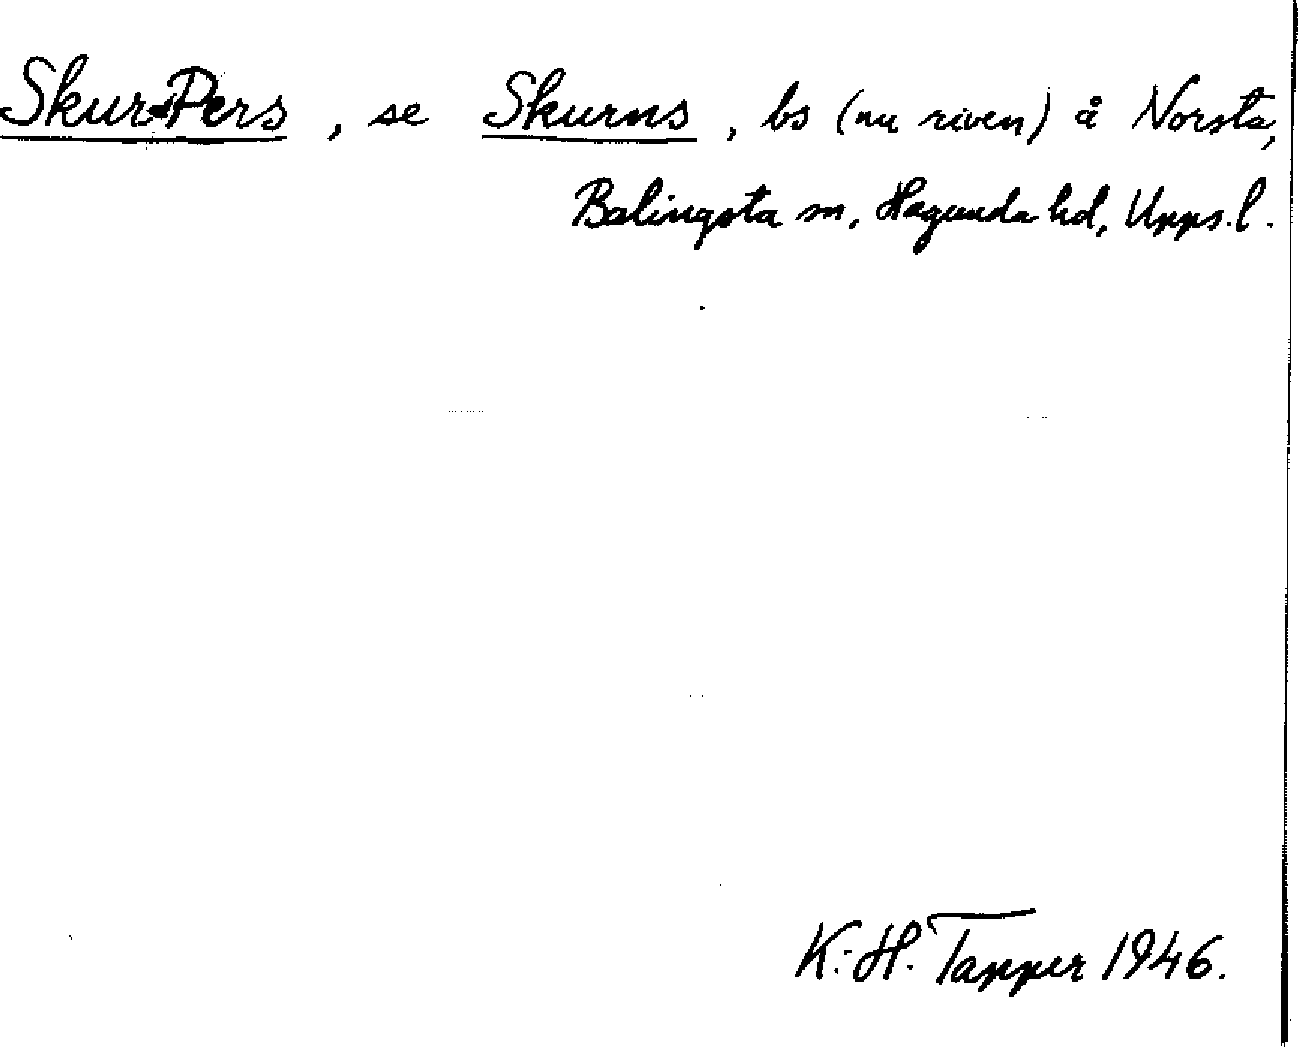 Skur-Pers, se Skurns, bs (nu riven) å Norsta,
Balingsta sn, Hagunda hd, Upps. l.
K.-H. Tapper 1946.